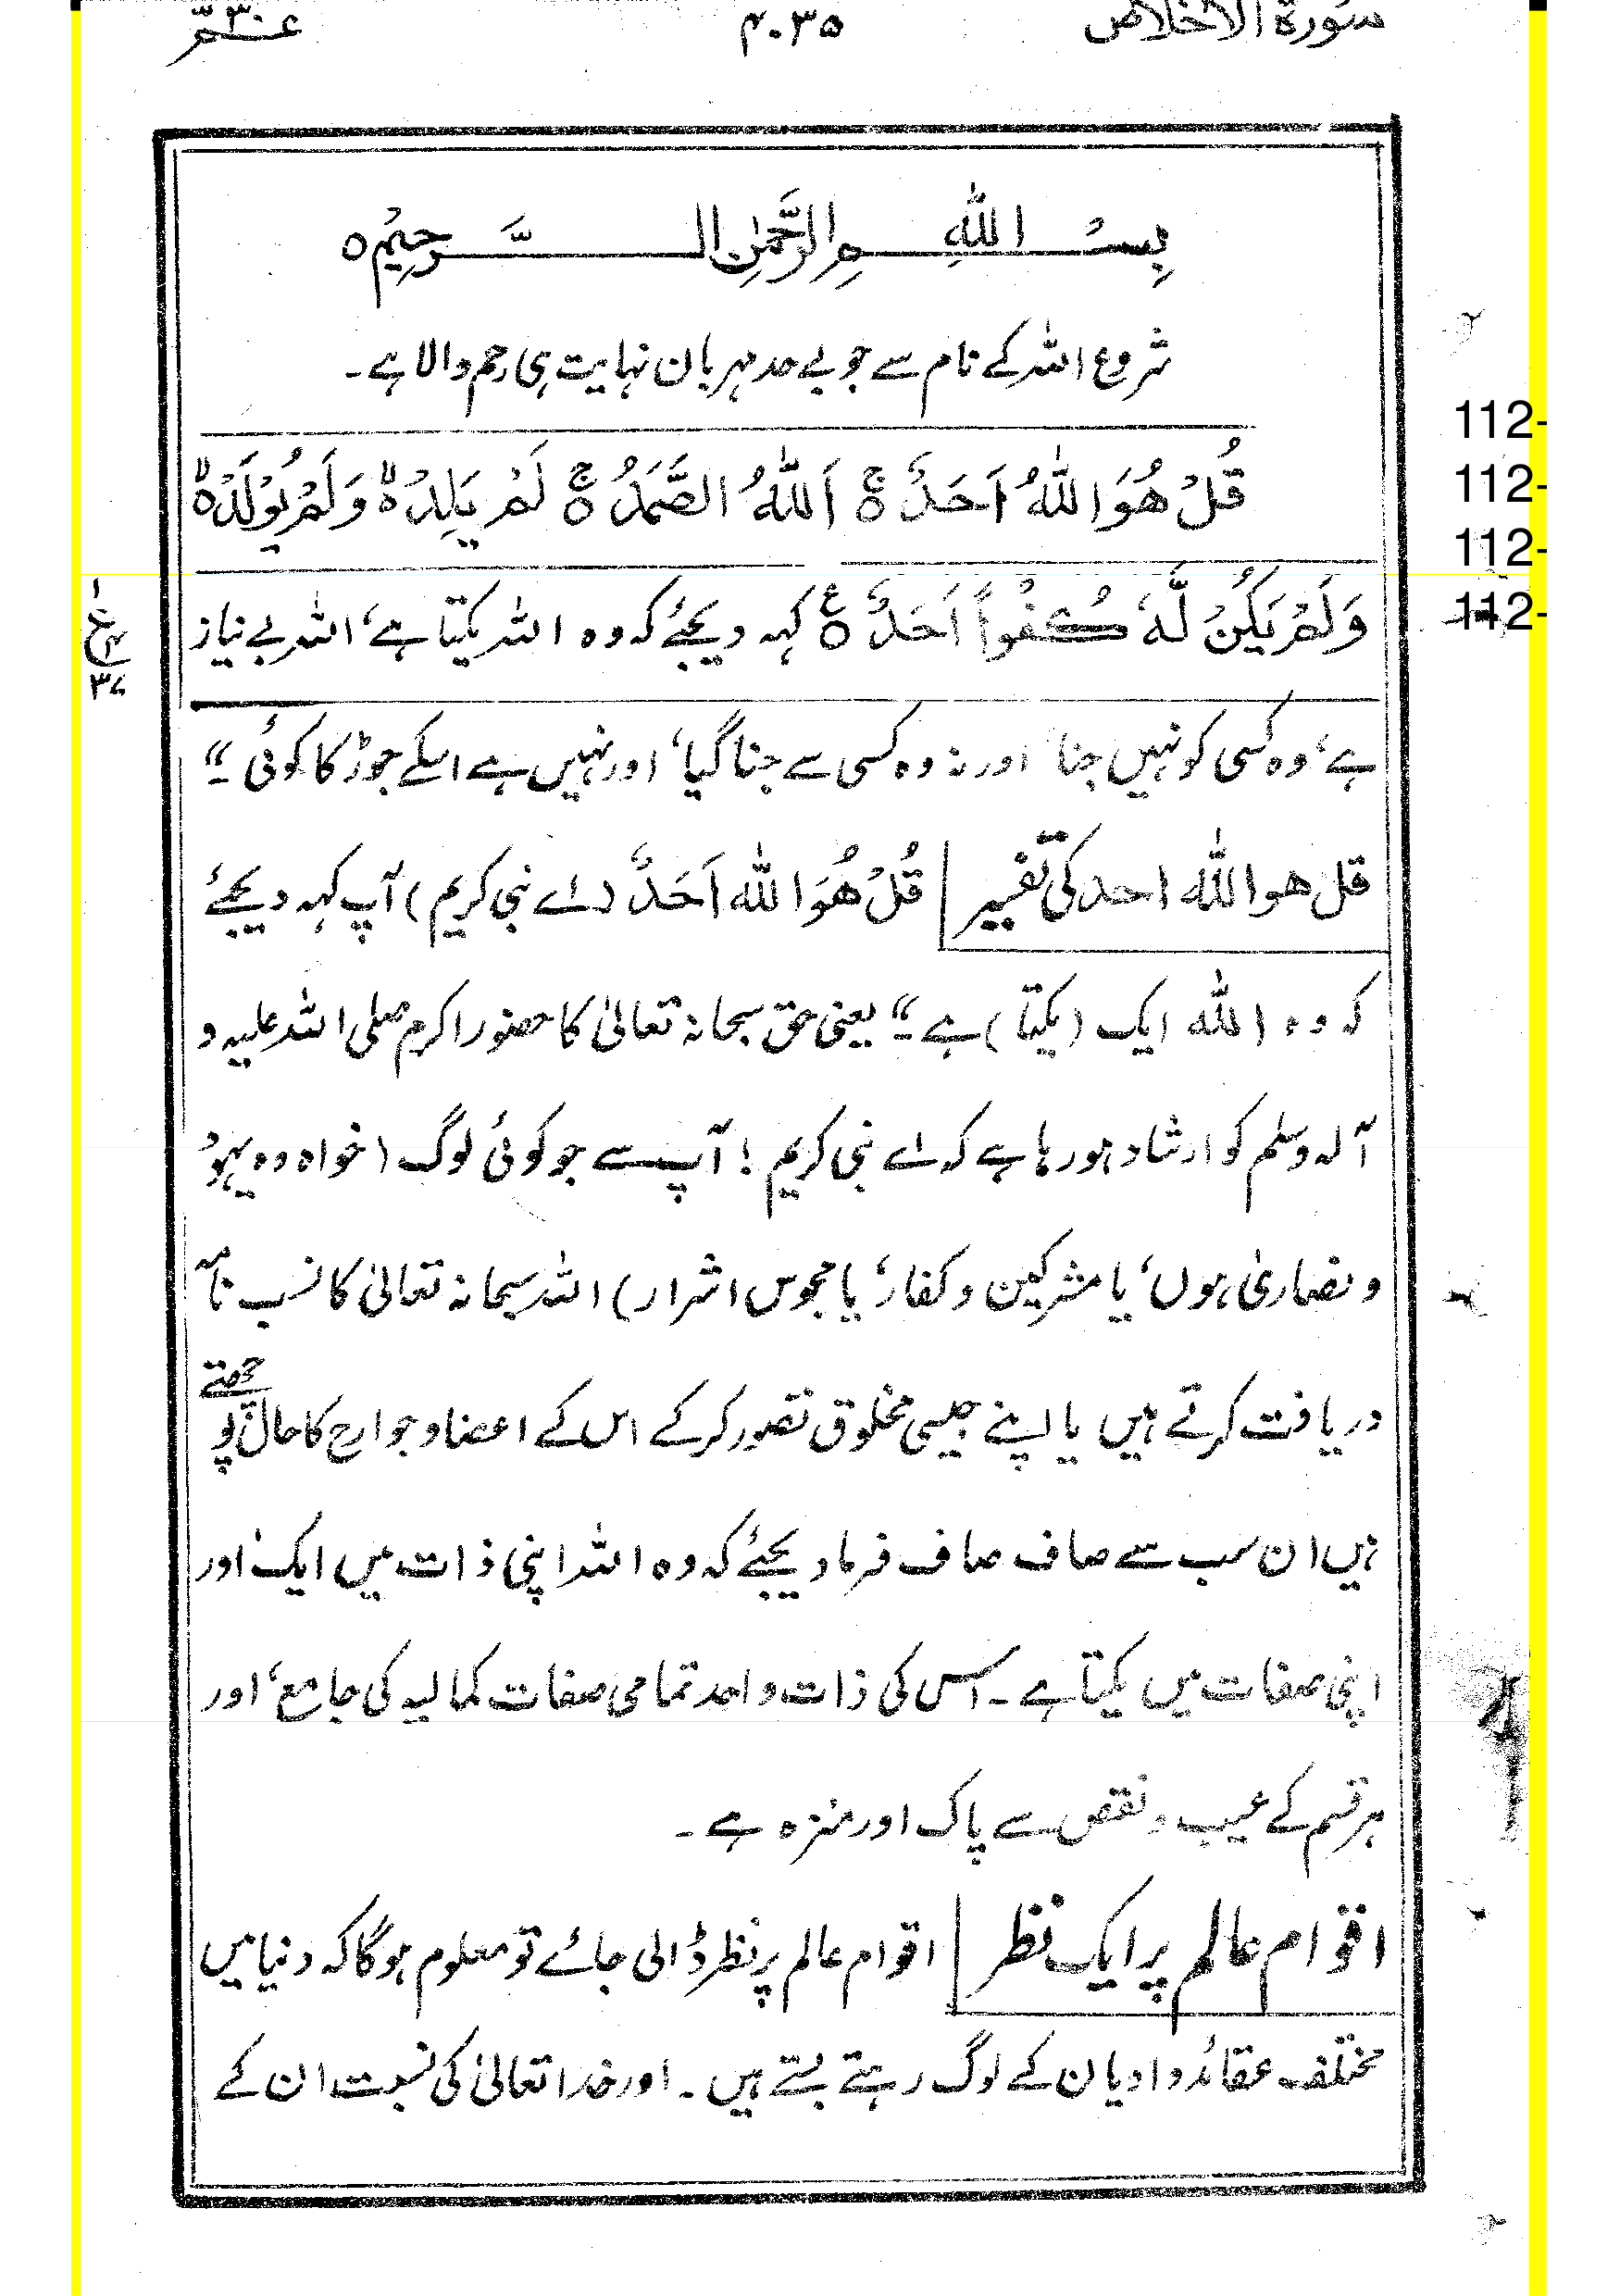 سورة الاخلاص ۴۰۳۵ عـــم ۳۰
بِسْمِ اللهِ الرَّحْمٰنِ الرَّحِيْمِ ٥
شروع اللہ کے نام سے جو بے حد مہربان نہایت ہی رحم والا ہے۔
قُلْ هُوَ اللهُ اَحَدٌ ۚ اَللهُ الصَّمَدُ ۚ لَمْ يَلِدْ ۙ وَلَمْ يُوْلَدْ ۙ
112-
112-
112-
وَلَمْ يَكُنْ لَّهٗ كُفُواً اَحَدٌ ۧ کہہ دیجئے کہ وہ اللہ یکتا ہے، اللہ بے نیاز
112-
۱
ع
۳۷
ہے، وہ کسی کو نہیں جنا اور نہ وہ کسی سے جنا گیا، اور نہیں ہے اسکے جوڑ کا کوئی ۔“
قل هو الله احد کی تفسیر قُلْ هُوَ الله اَحَدٌ (اے نبی کریم) آپ کہہ دیجئے
کہ وہ الله ایک (یکتا) ہے ۔“ یعنی حق سبحانہ تعالیٰ کا حضور اکرم صلی اللہ علیہ و
آلہ وسلم کو ارشاد ہو رہا ہے کہ اے نبی کریم ! آپ سے جو کوئی لوگ (خواہ وہ یہود
و نصاریٰ ہوں، یا مشرکین و کفار، یا مجوس اشرار) اللہ سبحانہ تعالیٰ کا نسب نامہ
دریافت کرتے ہیں یا اپنے جیسی مخلوق تصور کرکے اس کے اعضا و جوارح کا حال پوچھتے
ہیں ان سب سے صاف صاف فرما دیجئے کہ وہ اللہ اپنی ذات میں ایک اور
اپنی صفات میں یکتا ہے ۔ اس کی ذات واحد تمامی صفات کمالیہ کی جامع، اور
ہر قسم کے عیب و نقص سے پاک اور منزہ ہے ۔
اقوام عالم پر ایک نظر اقوام عالم پر نظر ڈالی جائے تو معلوم ہوگا کہ دنیا میں
مختلف عقائد و ادیان کے لوگ رہتے بستے ہیں ۔ اور خدا تعالیٰ کی نسبت ان کے